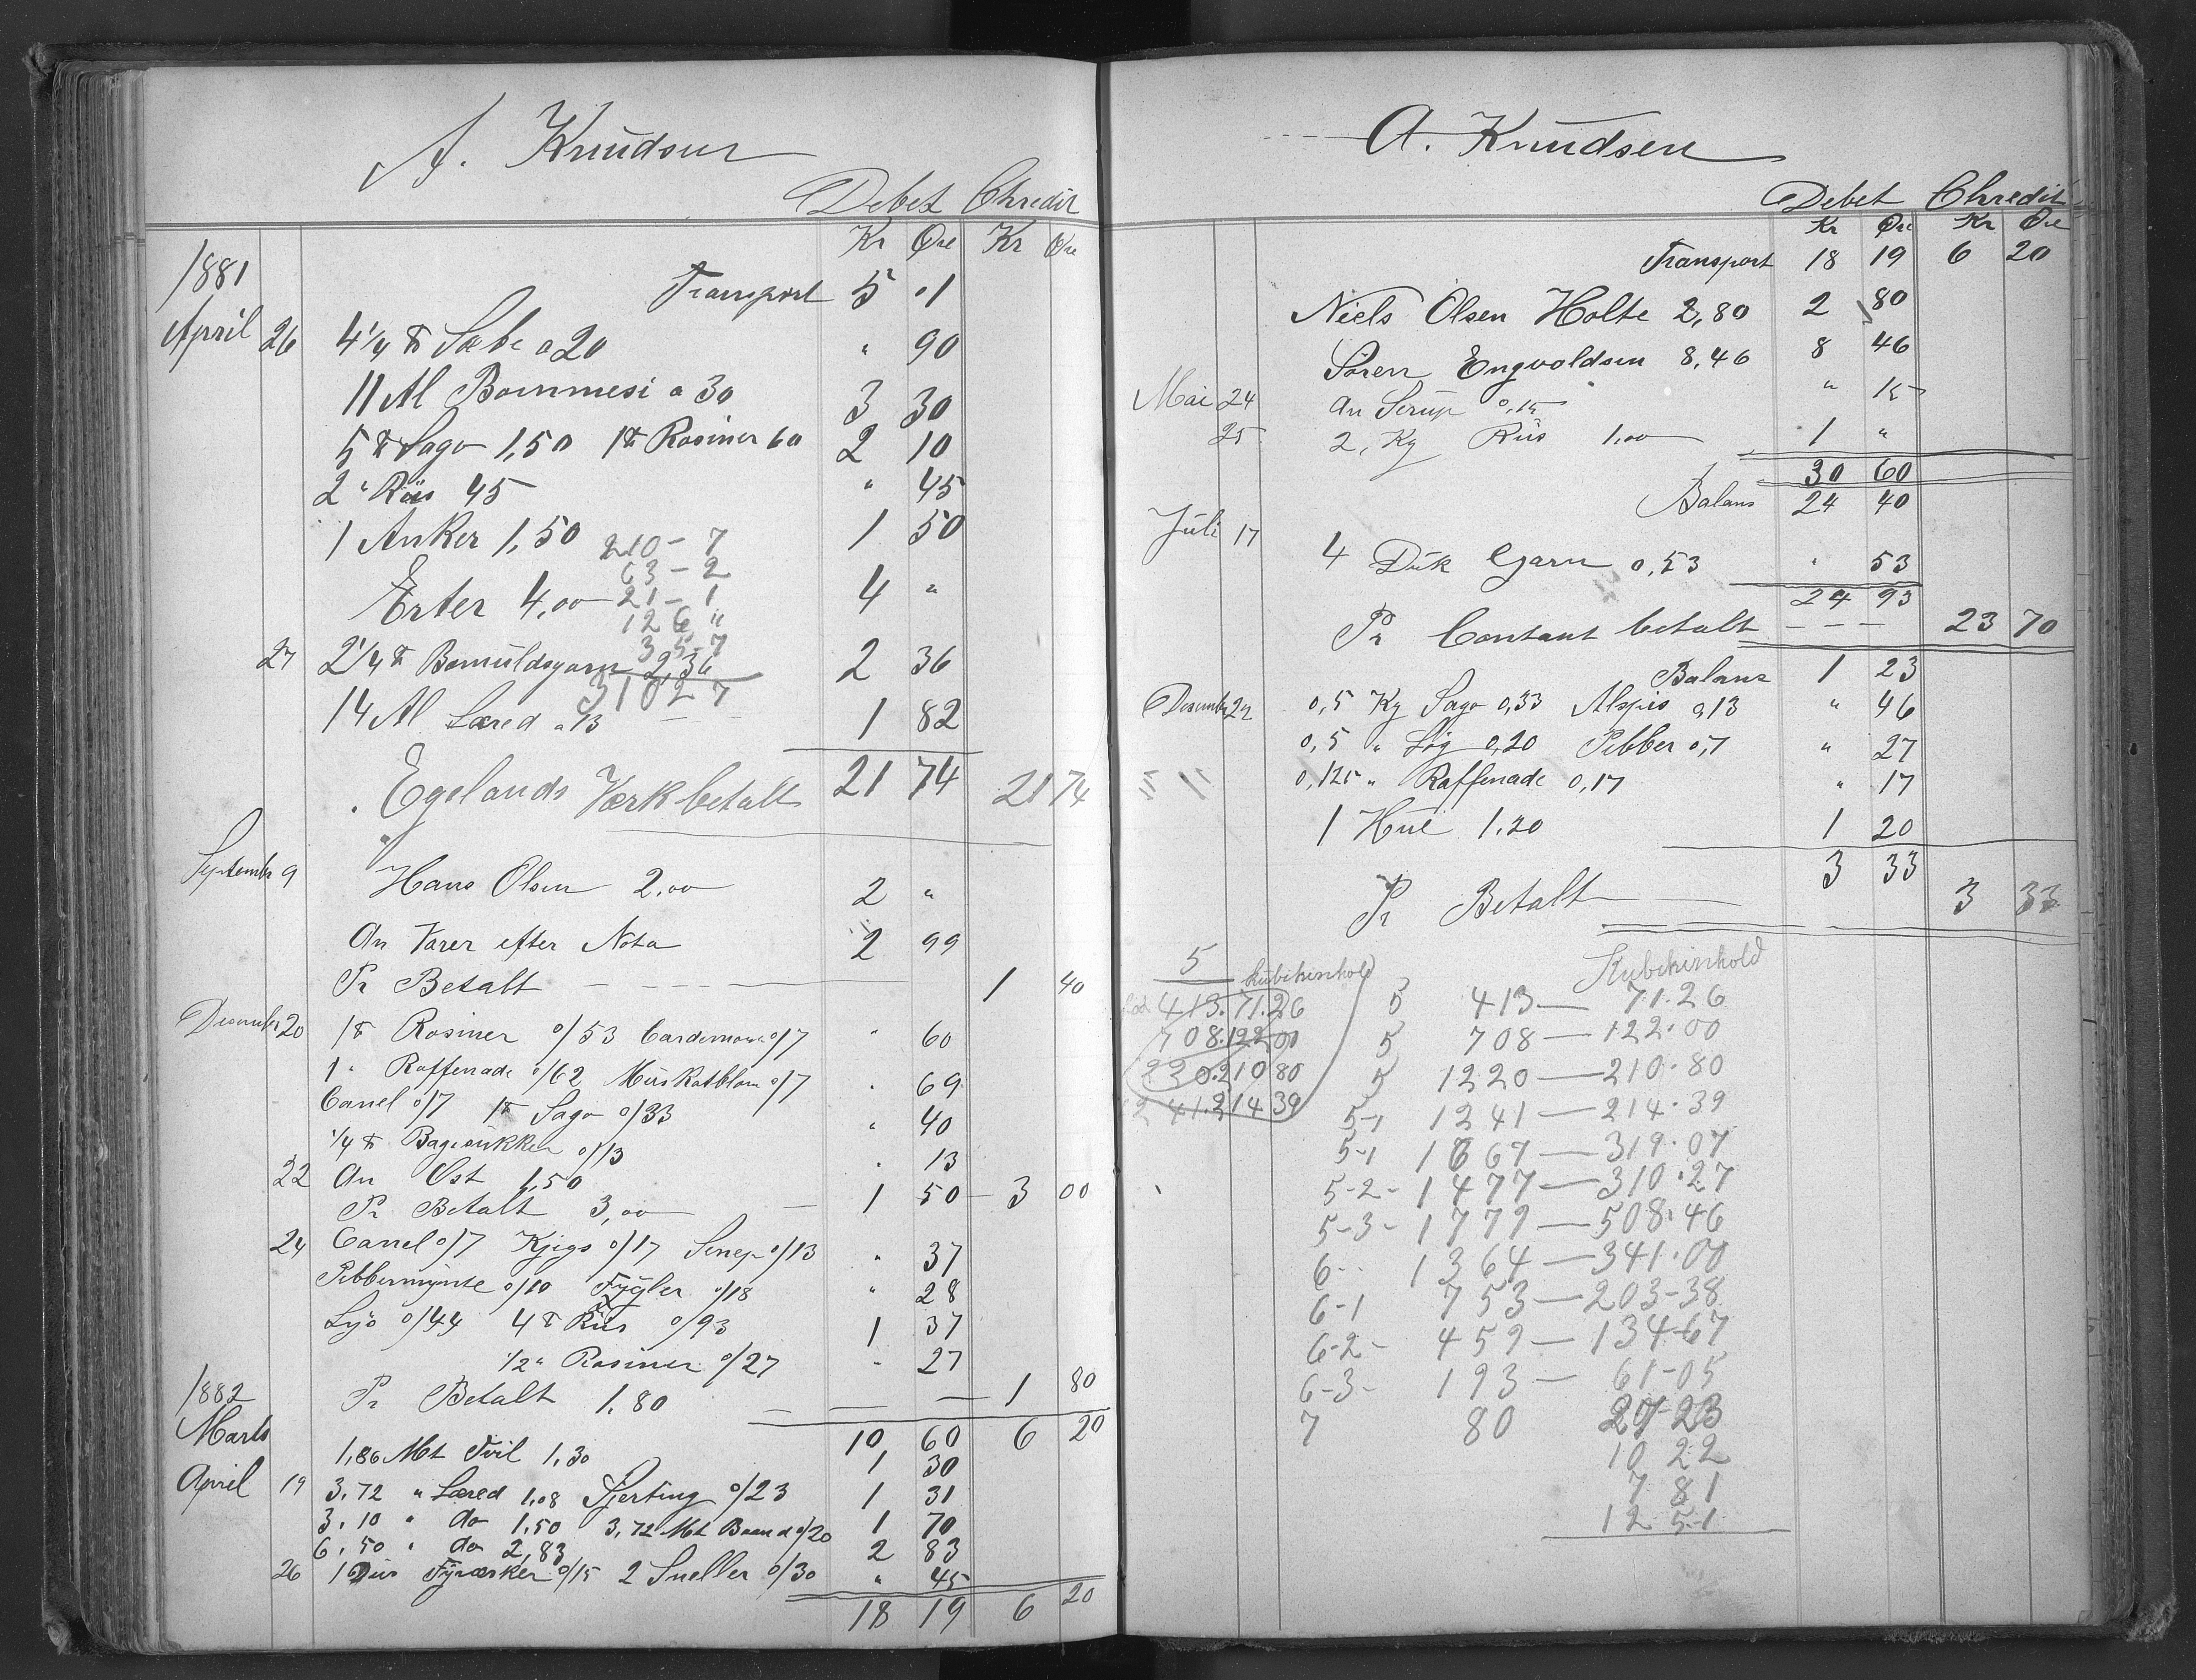 A. Knudsen
Debet Chredit
Kr Øre Kr Øre
1881
Transport 5 01
April 26 4 1/4 ℔ Sæbe a 20 " 90
11 Al Bommesi a 30 3 30
5 ℔ Sago 1,50 1 ℔ Rosiner 60 2 10
2 " Riis 45 " 45
1 Anker 1,50 1 50
210 - 7
63 - 2
Erter 4,00 4 "
21 - 1
126 "
35-7
27 2 1/4 ℔ Bomuldsgarn 2,36 2 36
310 27
14 Al Læred a 13 1 82
21 74
Egelands Værk betalt 21 74
September 9 Hans Olsen 2,00 2 "
An Varer efter Nota 2 99
Pr Betalt 1 40
Desember 20 1 ℔ Rosiner o/53 Cardemome o/7 " 60
1 " Raffenade o/62 Muskatblom o/7 " 69
Canel o/7 1 ℔ Sago o/33 " 40
1/4 ℔ Bagesukker o/13 " 13
22 An Ost 1,50 1 50
Pr Betalt 3,00 3 00
24 Canel o/7 Kjegs o/17 Senep o/13 " 37
Pebbermynte o/10 Fygler o/18 " 28
Lys o/44 4 ℔ Riis o/93 1 37
1/2 " Rosiner o/27 " 27
1882 Pr Betalt 1.80 1 80
10 60 6 20
Marts 1,86 Mt Tvil 1,30 1 30
April 19 3.72 " Læred 1,08 Sjerting o/23 1 31
3.10 " do 1,50 3,72 Mt Baand o/20 1 70
6.50 " do 2,83 2 83
26 1 Dus Fyræsker o/15 2 Sneller o/30 " 45
18 19 6 20
A. Knudsen
Debet Chredit
Kr Øre Kr Øre
Transport 18 19 6 20
Niels Olsen Holte 2,80 2 80
Søren Engvoldsen 8,46 8 46
Mai 24 An Serup 0,15 " 15
25 2, Kg Riis 1,00 1 "
30 60
Balans 24 40
Juli 17 4 Duk Garn 0,53 " 53
24 93
Pr Contant betalt 23 70
Balans 1 23
Desember 22 0,5 Kg Sago 0,33 Alspis 0,13 " 46
0,5 " Løg 0,20 Pebber 0,7 " 27
0,125 " Raffenade 0,17 " 17
1 Hue 1.20 1 20
3 33
Pr Betalt 3 33
5 kubikinhold
413.71.26
708.122 00
220.210 80
1241.214 39
Kubikinhold
5 413 — 71.26
5 708 — 122.00
5 1220 — 210.80
5-1 1241 — 214.39
5-1 1667 — 319.07
5-2- 1477 — 310.27
5-3- 1779 — 508.46
6-- 1364 — 341.00
6-1 753 — 203-38
6-2- 459 — 134-67
6-3- 193 — 61-05
7 80 27-23
10 22
7 81
12 51